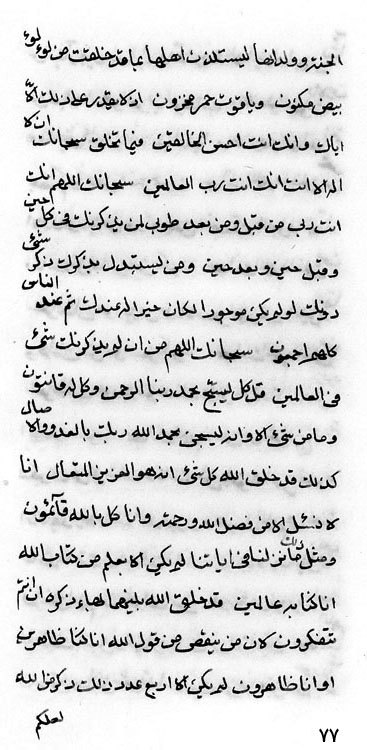 الجنة وولدانها ليستلذن اهلها عما قد خلقت من لؤلؤ
بيض مكنون وياقوت حمر مخزون اذ لا يقدر على ذلك الا
اياك وانك انت احسن الخالقين فيما تخلق سبحانك ان لا
اله الا انت انك انت رب العالمين سبحانك اللهم انك
انت ربى من قبل ومن بعد طوبى لمن يذكرنك فى كل حين
وقبل حين وبعد حين ومن يستبدل بذكرك ذكر شئ
دونك لو لم يكن موجودا لكان خيرا له عندك ثم عند الناس
كلهم اجمعون سبحانك اللهم من ان لو يذكرنك شئ
فى العالمين قل كل ليسبح بحمد ربنا الرحمن وكل له قانتون
وما من شئ الا وانه ليسجد بحمد الله ربك بالغدو والاصال
كذلك قد خلق الله كل شئ انه هو العزيز المتعال انا
لا نسئل الا من فضل الله ورحمته وانا كل بالله قآئمون
ومثل ذلك ما نزلنا فى اياتنا لم يكن الا بعلم من كتاب الله
انا كنا به عالمين قد خلق الله بلفيها بهاء ذكره ان انتم
تتفكرون كان من ينقص من قول الله انا كنا ظاهرين
او انا ظاهرون لم يكن الا اربع عدد ذلك ذكر من الله
لعلكم
٧٧